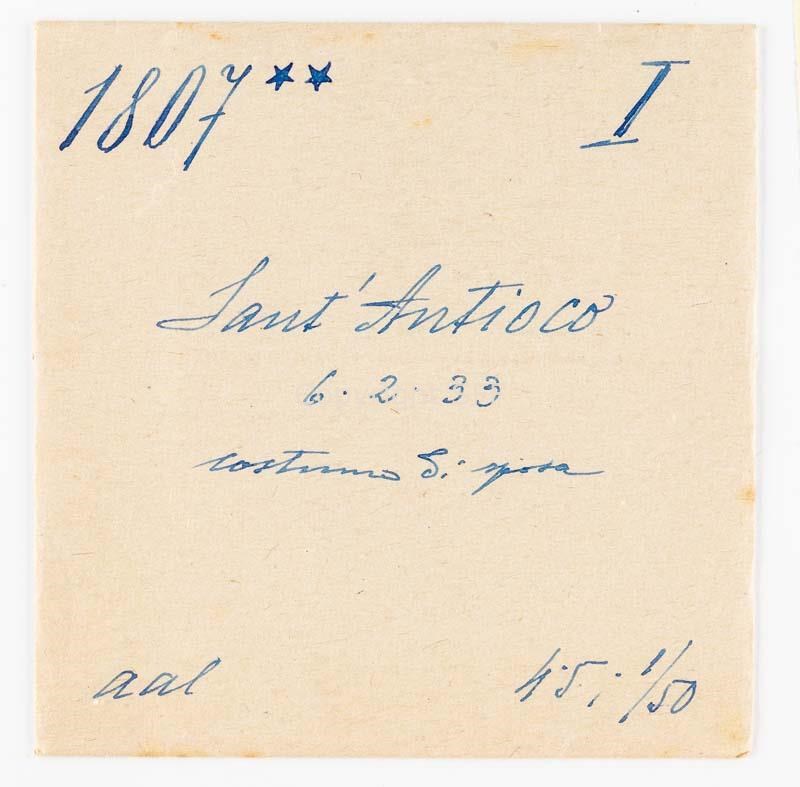 1807** I
Sant'Antioco
6. 2. 33
costume di sposa
aal 4.5; 1/50